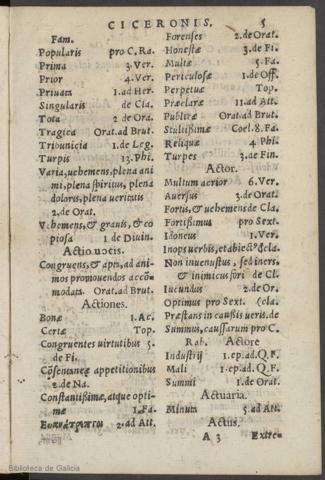 CICERONIS. 5
Fam.
Popularis pro C. Ra.
Prima 3. Ver.
Prior 4. Ver.
Priuata 1. ad Her.
Singularis de Cla.
Tota 2 de Ora.
Tragica Orat. ad Brut.
Tribunicia 1. de Leg.
Turpis 13. Phi.
Varia, uehemens, plena ani
mi, plena spiritus, plena
doloris, plena ueritatis
2. de Orat.
Vehemens, & grauis, & co
piosa 1 de Diuin.
Actio uocis.
Congruens, & apta, ad ani-
mos promouendos accõ-
modata Orat. ad Brut.
Actiones.
Bonæ 1. Ac.
Certæ Top.
Congruentes uirtutibus 5.
de Fi.
Cõsentaneæ appetitionibus
2. de Na.
Constantißimæ, atque opti-
mæ 1. Fa.
2. ad Att.
Forenses 2. de Orat.
Honestæ 3. de Fi.
Multæ 5. Fa.
Periculosæ 1. de Off.
Perpetuæ Top.
Præclaræ 11. ad Att.
Publicæ Orat. ad Brut.
Stultißimæ Coel. 8. Fa.
Reliquæ 4 Phi.
Turpes 3. de Fin.
Actor.
Multum acrior 6. Ver.
Auersus 3. de Orat.
Fortis, & uehemens de Cla.
Fortißimus pro Sext.
Idoneus 1. Ver.
Inops uerbis, et abiectꝰ d̃ cla.
Non inuenustus, sed iners.
& inimicus fori de Cl.
Iucundus 2. de Or.
Optimus pro Sext. (cla.
Præstans in caußis ueris. de
Summus, caussarum pro C.
Rab. Actore
Industrij 1. ep. ad. Q. F.
Mali 1. ep. ad. Q. F.
Summi 1. de Orat.
Actuaria.
Minuta 5. ad Att.
Actus.
A 3 Extre-
Biblioteca de Galicia